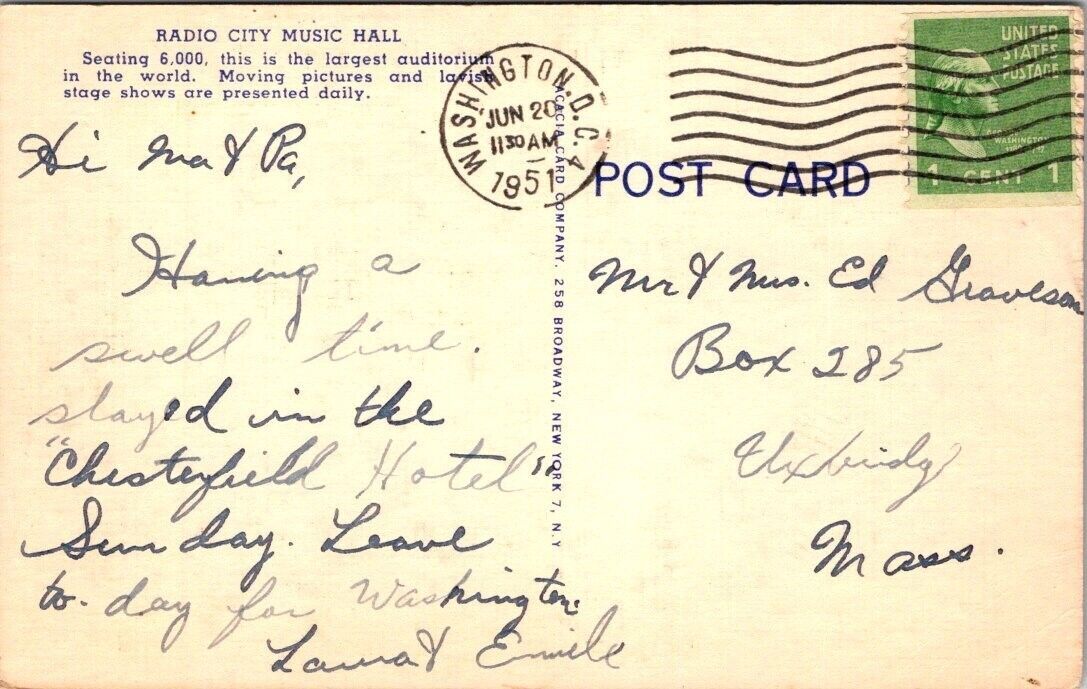 RADIO CITY MUSIC HALL
Seating 6,000, this is the largest auditorium
in the world. Moving pictures and lavish
stage shows are presented daily.
Hi Ma & Pa,
Having a
swell time.
stayed in the
"Chesterfield Hotel"
Sunday. Leave
to-day for Washington
Laura & Emile
WASHINGTON, D.C. 4
JUN 20
11 30 AM
1951
ACACIA CARD COMPANY, 258 BROADWAY, NEW YORK 7, N.Y.
UNITED
STATES
POSTAGE
GEORGE
WASHINGTON
1 CENT 1
POST CARD
Mr & Mrs. Ed Graveson
Box 285
Uxbridge
Mass.